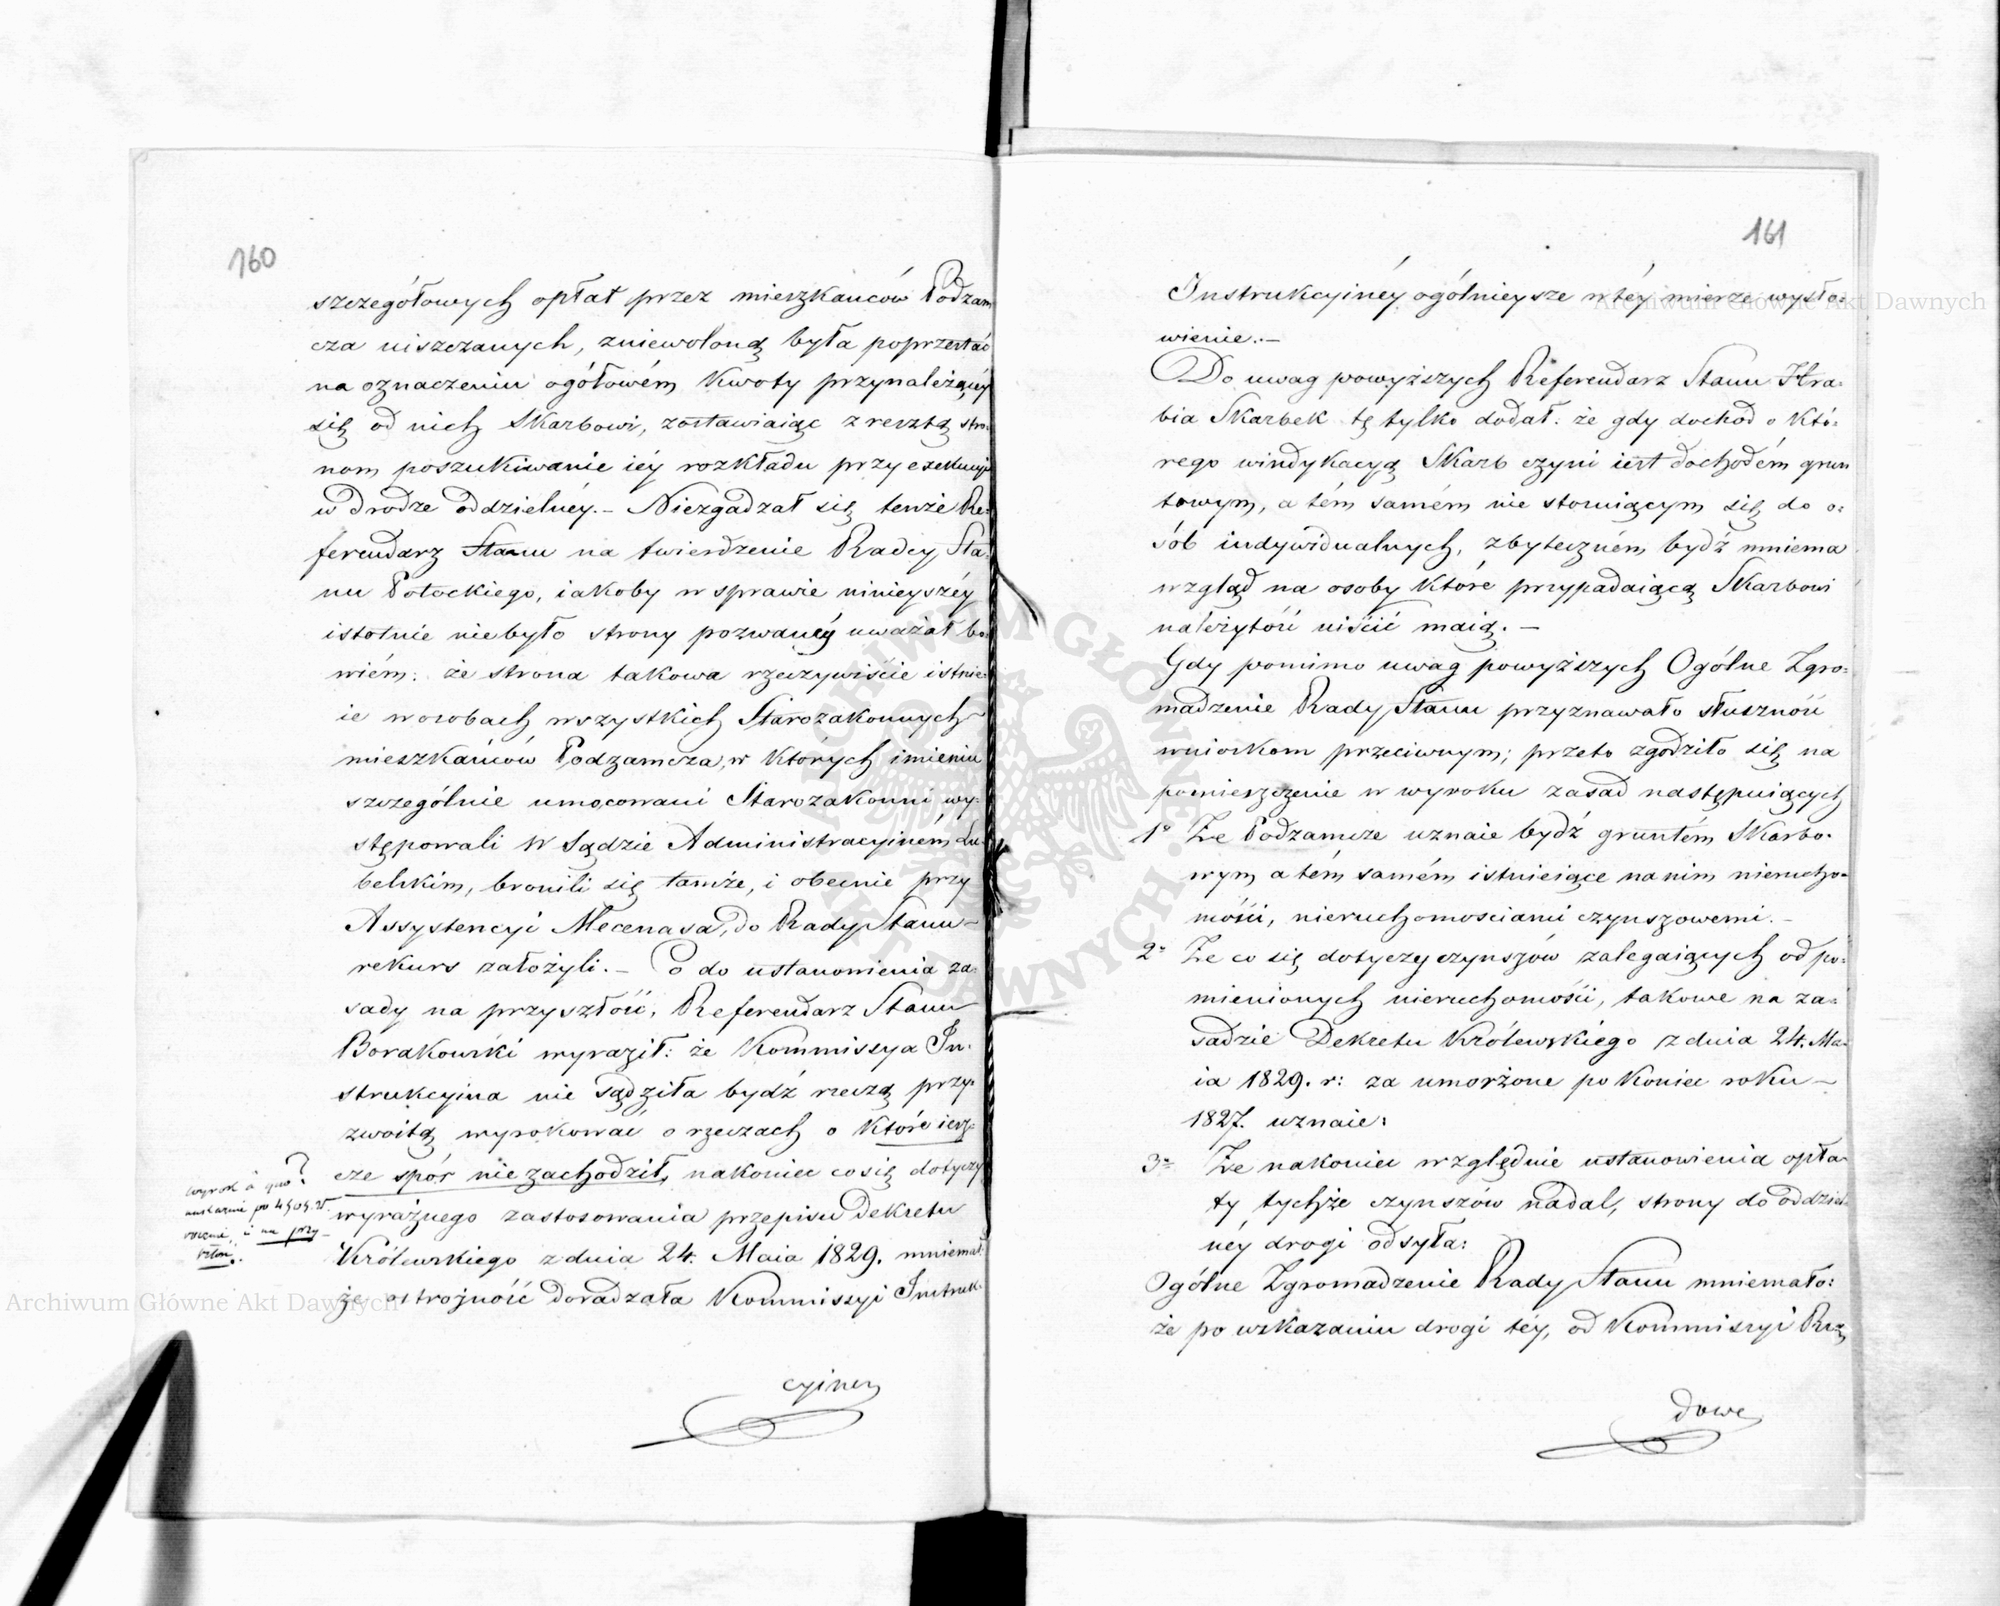 160
szczegółowych opłat przez mieszkańców Podzam
cza uiszczanych, zniewoloną była poprzestać
na oznaczeniu ogółowém kwoty przynależącéy
się od nich Skarbowi, zostawiaiąc zresztą stro-
nom poszukiwanie iéy rozkładu przy exekucyi
w drodze oddzielnéy. – Niezgadzał się tenże Re-
ferendarz Stanu na twierdzenie Radcy Sta-
nu Potockiego, iakoby w sprawie ninieyszéy
istotnie niebyło strony pozwanéy uważał bo-
wiém: że strona takowa rzeczywiście istnie-
ie w osobach wszystkich Starozakonnych
mieszkańców Podzamcza, w których imieniu
szczególnie umocowani Starozakonni wy-
stępowali w Sądzie Administracyiném Lu-
belskim, bronili się tamże, i obecnie przy
Assystencyi Mecenasa, do Rady Stanu
rekurs założyli. – Co do ustanowienia za-
sady na przyszłość, Referendarz Stanu
Borakowski wyraził: że Kommissya In-
strukcyina nie sądziła bydź rzeczą przy-
zwoitą wyrokować o rzeczach o które iesz-
cze spór nie zachodził, nakoniec co się dotyczy
wyraźnego zastosowania przepisu Dekretu
Królewskiego z dnia 24. Maia 1829. mniemał
że ostrojność doradzała Kommissyi Instruk-
cyiney
wyrok à quo?
rocznie, i na przy-
szłość.
161
Instrukcyinéy ogólnieysze w téy mierze wysło-
wienie. –
Do uwag powyższych Referendarz Stanu Hra-
bia Skarbek tę tylko dodał: że gdy dochód o któ-
rego windykacyą Skarb czyni iest dochodém grun
towym, a tém samém nie stosuiącym się do o-
sób indywidualnych, zbyteczném bydź mniema
wzgląd na osoby które przypadaiącą Skarbowi
należytość uiścić maią. –
Gdy pomimo uwag powyższych Ogólne Zgro-
madzenie Rady Stanu przyznawało słuszność
wnioskom przeciwnym; przeto zgodziło się na
pomieszczenie w wyroku zasad następuiących
1º Że Podzamcze uznaie bydź gruntém Skarbo-
wym, a tém samém istnieiące na nim nierucho-
mości, nieruchomosciami czynszowemi. –
2º Że co się dotyczy czynszów zalegaiących od po-
mienionych nieruchomości, takowe na za-
sadzie Dekretu Królewskiego z dnia 24. Ma-
ia 1829. r: za umorzone po koniec roku –
1827. uznaie:
3º Że nakoniec względnie ustanowienia opła-
ty tychże czynszów nadal, strony do oddziel-
néy drogi odsyła:
Ogólne Zgromadzenie Rady Stanu mniemało:
że po wskazaniu drogi téy, od Kommissyi Rzą
dowe
Archiwum Główne Akt Dawnych
Archiwum Główne Akt Dawnych
ARCHIWUM GŁÓWNE AKT DAWNYCH